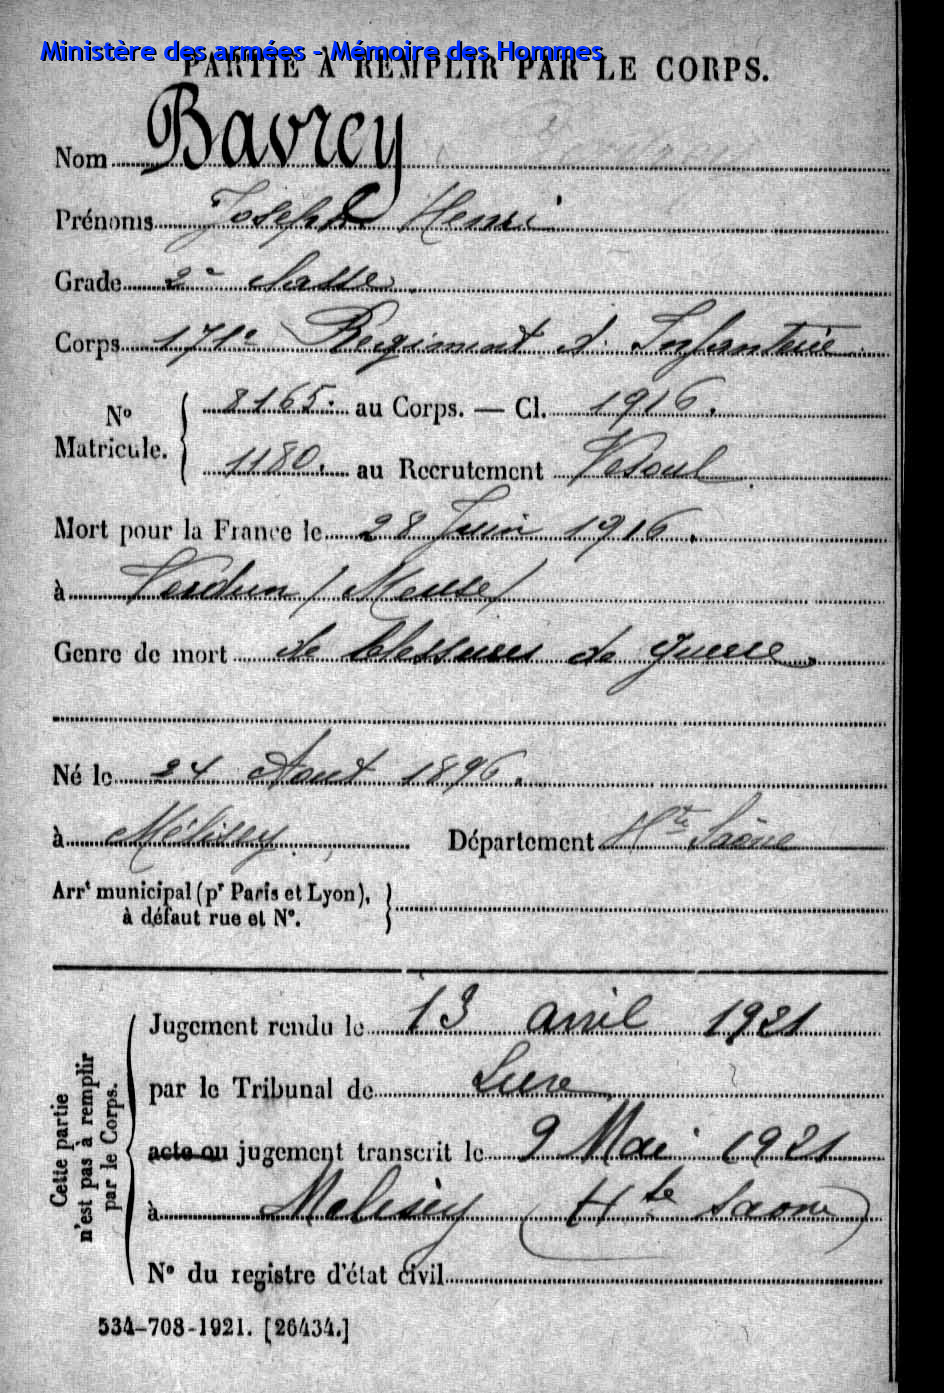 Ministère des armées - Mémoire des Hommes
PARTIE À REMPLIR PAR LE CORPS.
Nom Bavrey
Prénoms Joseph Henri
Grade 2e classe
Corps 171e Régiment d'Infanterie
No Matricule. { 8165. au Corps. — Cl. 1916.
1180. au Recrutement Vesoul
Mort pour la France le 28 Juin 1916.
à Verdun (Meuse)
Genre de mort de blessures de guerre.
Né le 24 Aout 1896.
à Mélisey Département Hte Saône
Arrt municipal (pr Paris et Lyon),
à défaut rue et No.
Cette partie n'est pas à remplir par le Corps.
Jugement rendu le 13 avril 1921
par le Tribunal de Lure
acte ou jugement transcrit le 9 Mai 1921
à Melisey (Hte Saone)
No du registre d'état civil
534-708-1921. [26434.]